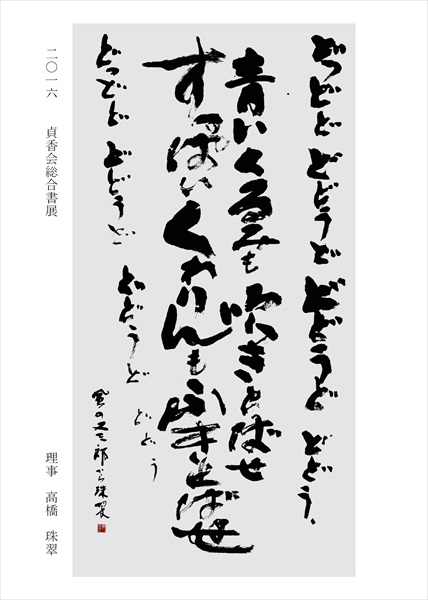 どっどど どどうど どどうど どどう、
青いくるみも吹きとばせ
すっぱいくわりんも吹きとばせ
どっどど どどうど
どどうど
どどう
風の又三郎から 珠翠
二〇一六 貞香会総合書展
理事 高橋 珠翠